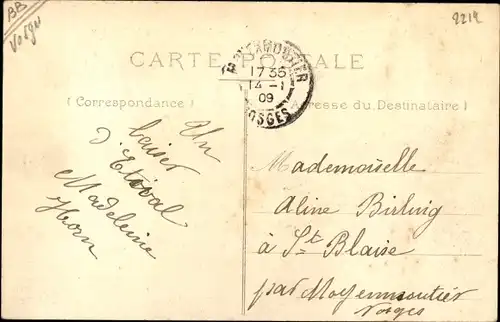 BB
Vosges
2212
CARTE POSTALE
MOYENMOUTIER
17 35
14 - 1
09
VOSGES
(Correspondance)
Adresse du Destinataire)
Un
baiser
d'Etival
Madeleine
Horn
Mademoiselle
Aline Birling
à St Blaise
par Moyenmoutier
Vosges